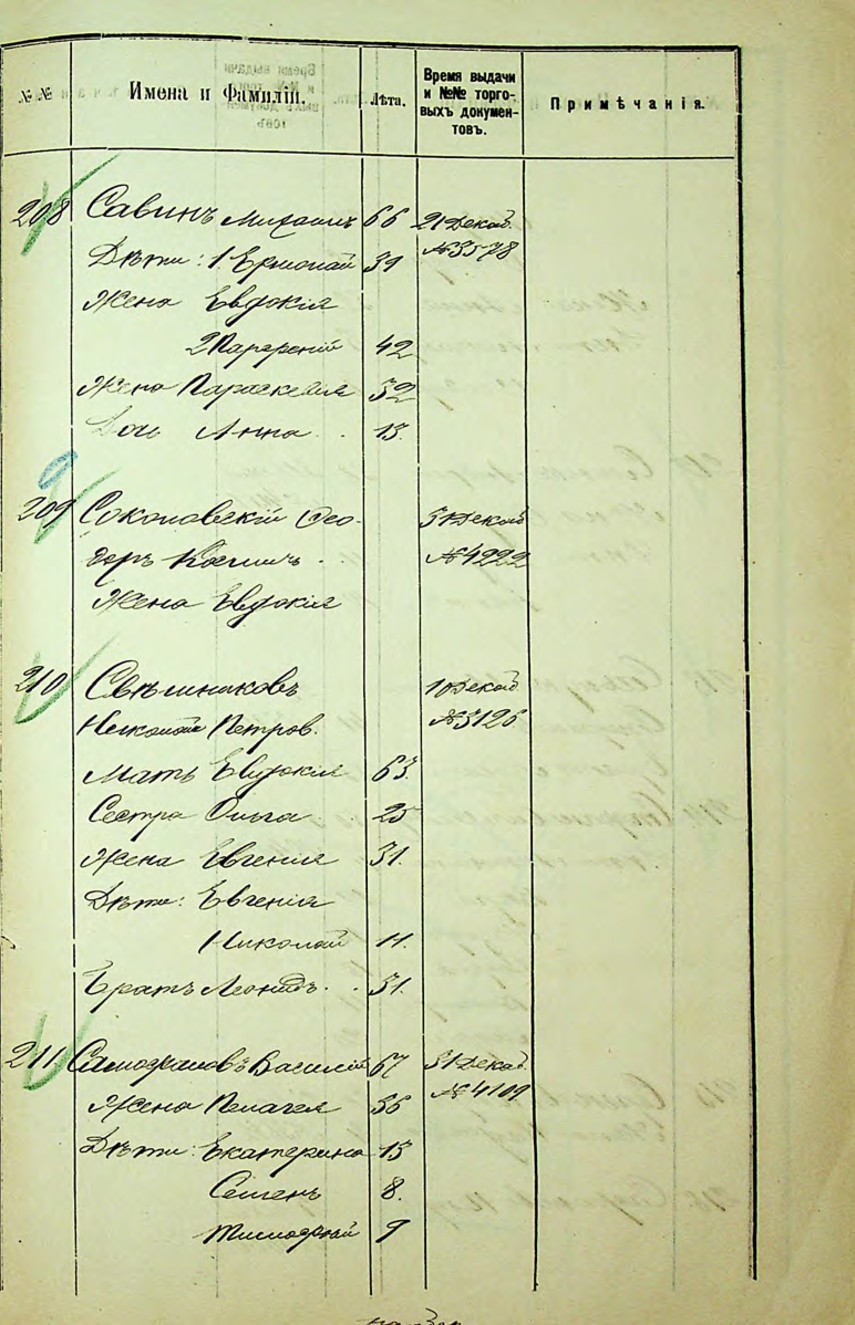 № №
Имена и Фамиліи.
Лѣта.
Время выдачи
и №№ торго-
выхъ докумен-
товъ.
Примѣчанія.
208 Савинъ Михаилъ 66 21 Декаб.
Дѣти: 1. Ермолай 39 №3578
Жена Евдокія
2 Парфеній 42
Жена Параскевия 32
Дочь Анна . . 13.
209 Соколовскій Фео- 31 Декаб
доръ Косьмичъ . №4222
Жена Евдокія
210 Свѣшниковъ 10 Декаб
Николай Петров. №3126
Мать Евдокия 63.
Сестра Ольга . 25
Жена Евгения 31.
Дѣти: Евгенія
Николай 11.
Братъ Леонидъ . . 31.
211 Василій 67 31 Декаб.
Жена Пелагея 36 №4109
Дѣти: Екатерина 13
Семенъ 8.
Тимофей 9